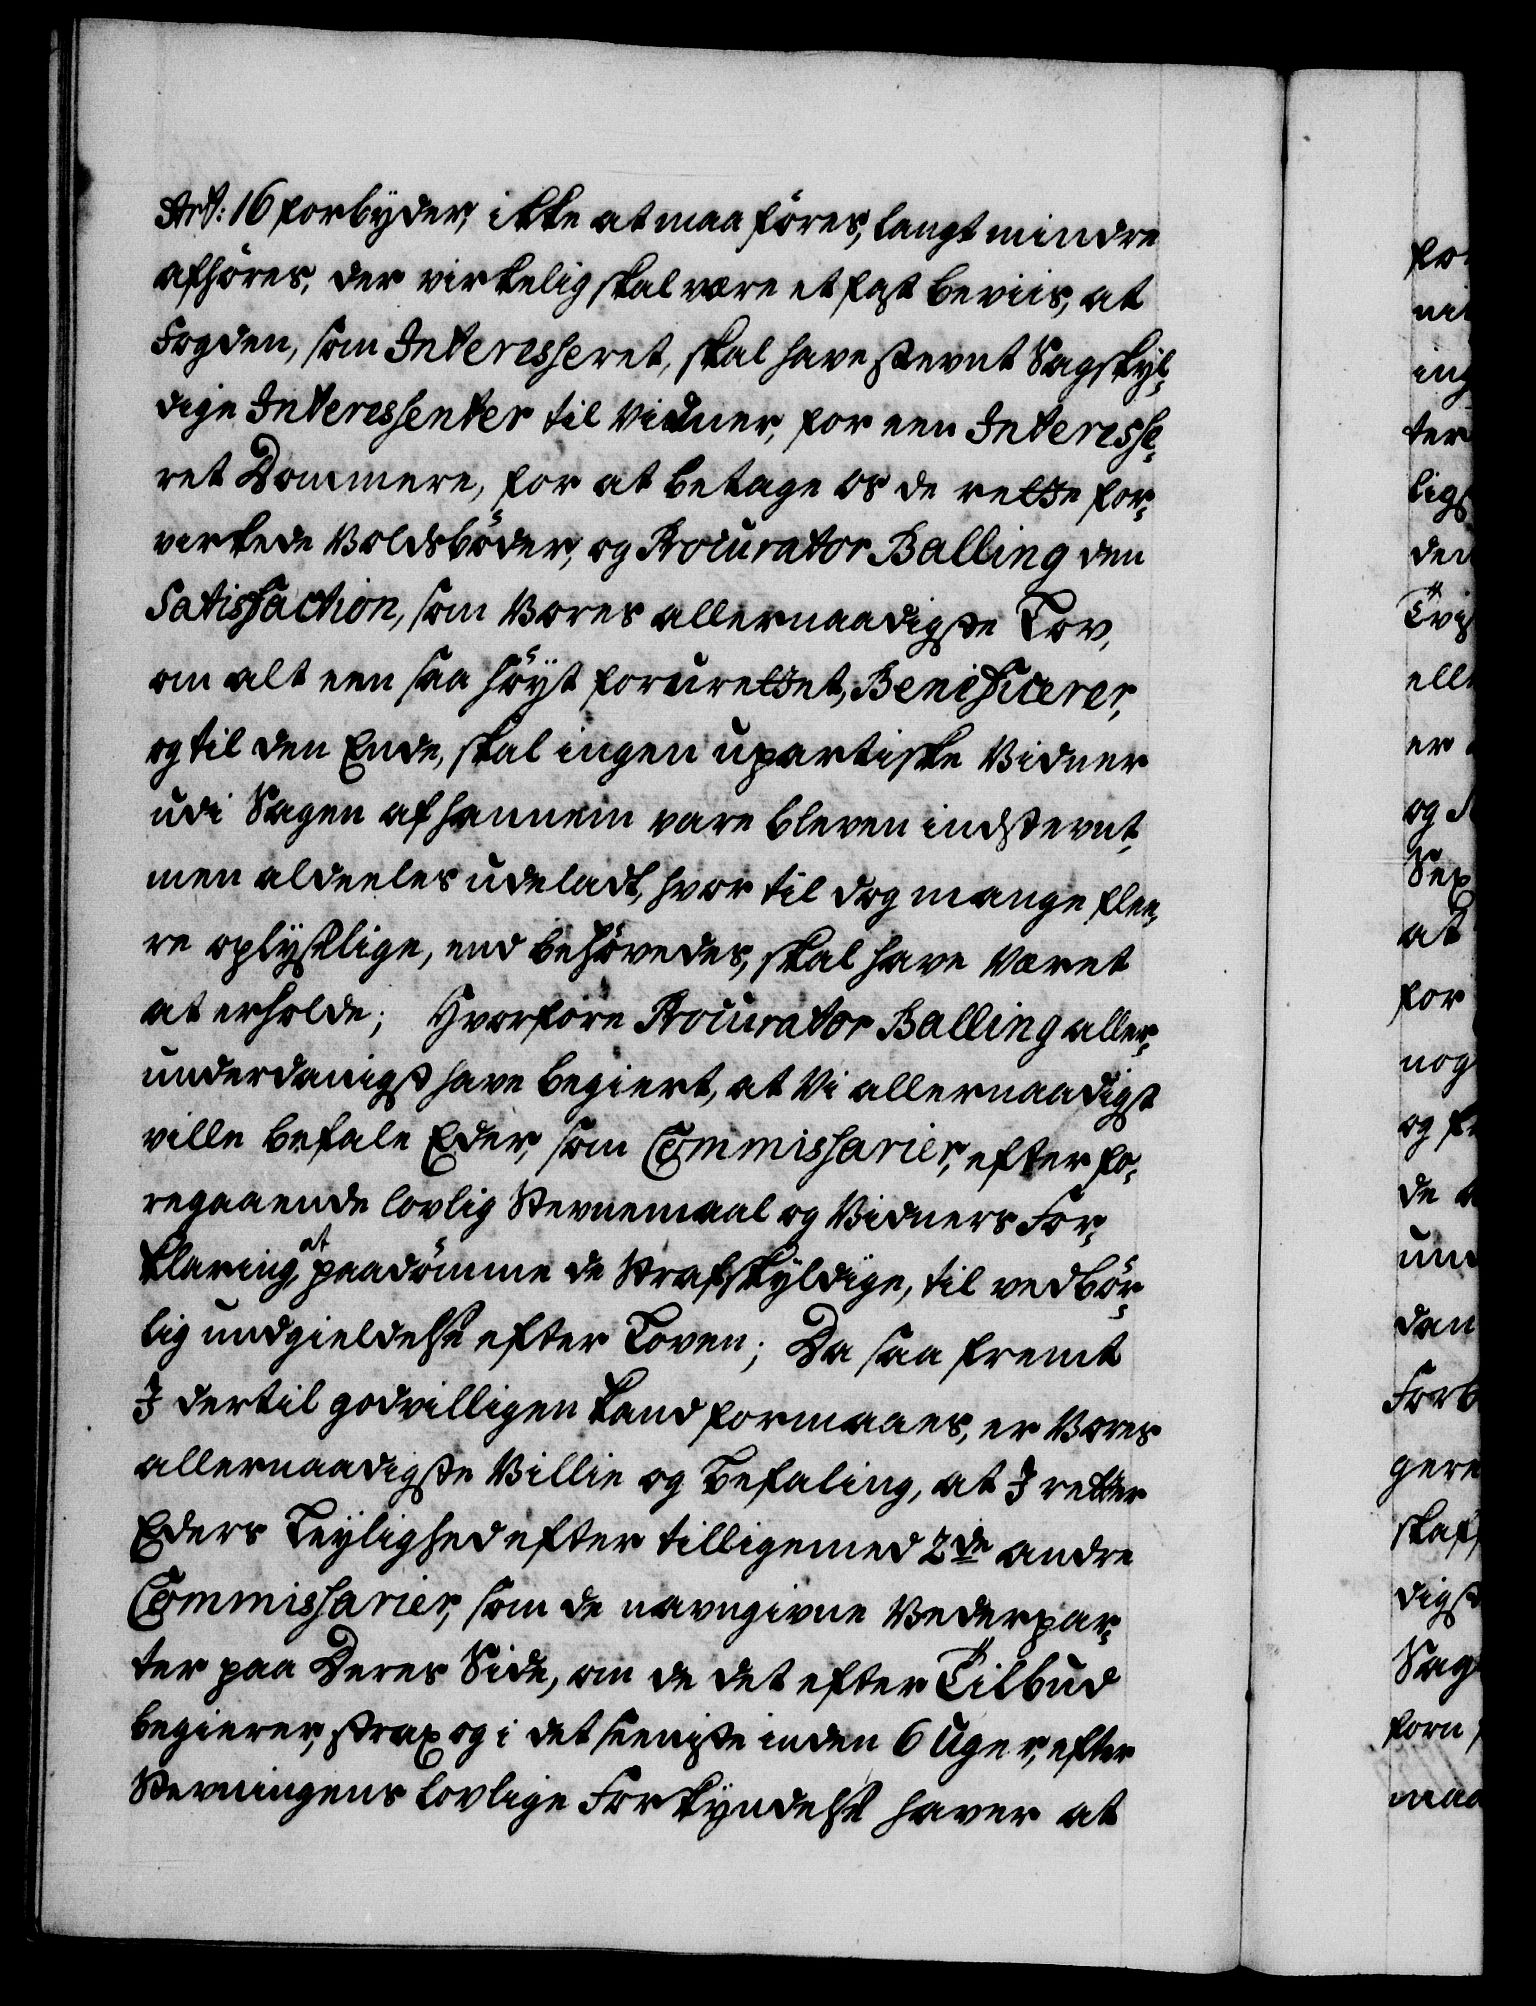 Art: 16 forbyder, ikke at maa föres, langt mindre
afhöres, der virkelig skal være et fast beviis, at
Fogden, som Interesseret, skal have stevnt Sagskyl-
dige Interessenter til Vidner, for een Interesse-
ret Dommere, for at betage os de rette for-
virkede Voldsböder, og Procurator Balling den
Satisfaction, som Vores allernaadigste Lov,
om alt een saa höyt foruretttet, Benificerer,
og til den Ende, skal ingen upartiske Vidner
udi Sagen af hannem vare bleven indstevnt,
men aldeeles udeladt, hvor til dog mange flee-
re oplyslige, end behövedes, skal have været
at erholde; Hvorfore Procurator Balling aller-
underdanigst have begiert, at Vi allernaadigst
ville befale Eder, som Commissarier, efter fo-
regaaende lovlig Stevnemaal og Vidners For-
klaring, at paadömme de Strafskyldige, til vedbör-
lig undgieldelse efter Loven; Da saa fremt
I dertil godvilligen kand formaaes, er Vores
allernaadigste Villie og Befaling, at I retter
Eders Leylighed efter tilligemed 2de andre
Commissarier, som de navngivne Vederpar-
ter paa Deres Side, om de det efter Tilbud
begierer, strax og i det seeniste inden 6 Uger, efter
Stevningens lovlige Forkyndelse haver at